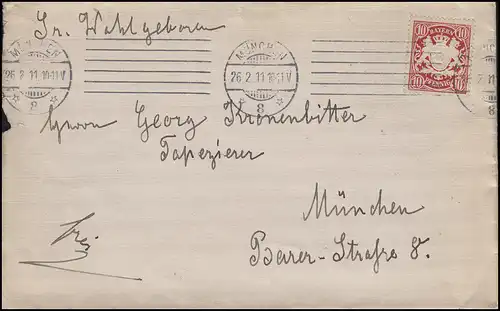 Sr. Wohlgeboren
MÜNCHEN
26 2 11 10-11V
8
MÜNCHEN
26 2 11 10-11V
8
10 BAYERN 10
10 PFENNIG 10
Herrn Georg Kronenbitter
Tapezierer
München
Barer-Strasse 8.
frei